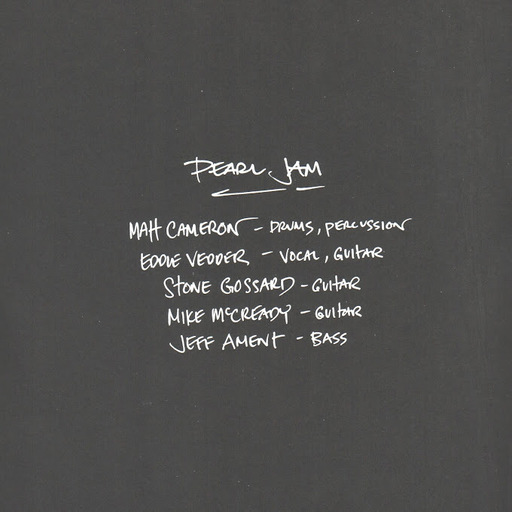 PEARL JAM
MATT CAMERON - DRUMS, PERCUSSION
EDDIE VEDDER - VOCAL, GUITAR
STONE GOSSARD - GUITAR
MIKE McCREADY - GUITAR
JEFF AMENT - BASS